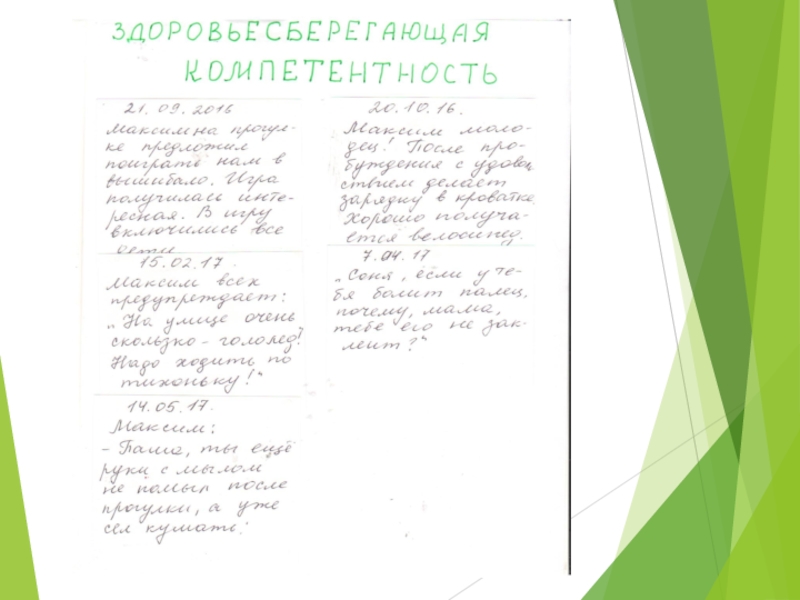 ЗДОРОВЬЕСБЕРЕГАЮЩАЯ
КОМПЕТЕНТНОСТЬ
21.09.2016
Максим на прогул-
ке предложил
поиграть нам в
вышибало. Игра
получилась инте-
ресная. В игру
включились все
дети
15.02.17.
Максим всех
предупреждает:
„На улице очень
скользко - гололед!
Надо ходить по
тихоньку!“
14.05.17.
Максим:
- Паша, ты ещё
руки с мылом
не помыл после
прогулки, а уже
сел кушать.
20.10.16.
Максим моло-
дец! После про-
буждения с удово
ствием делает
зарядку в кроватке.
Хорошо получа-
ется велосипед.
7.04.17
„Соня, если у те-
бя болит палец,
почему, мама,
тебе его не зак-
леит?“